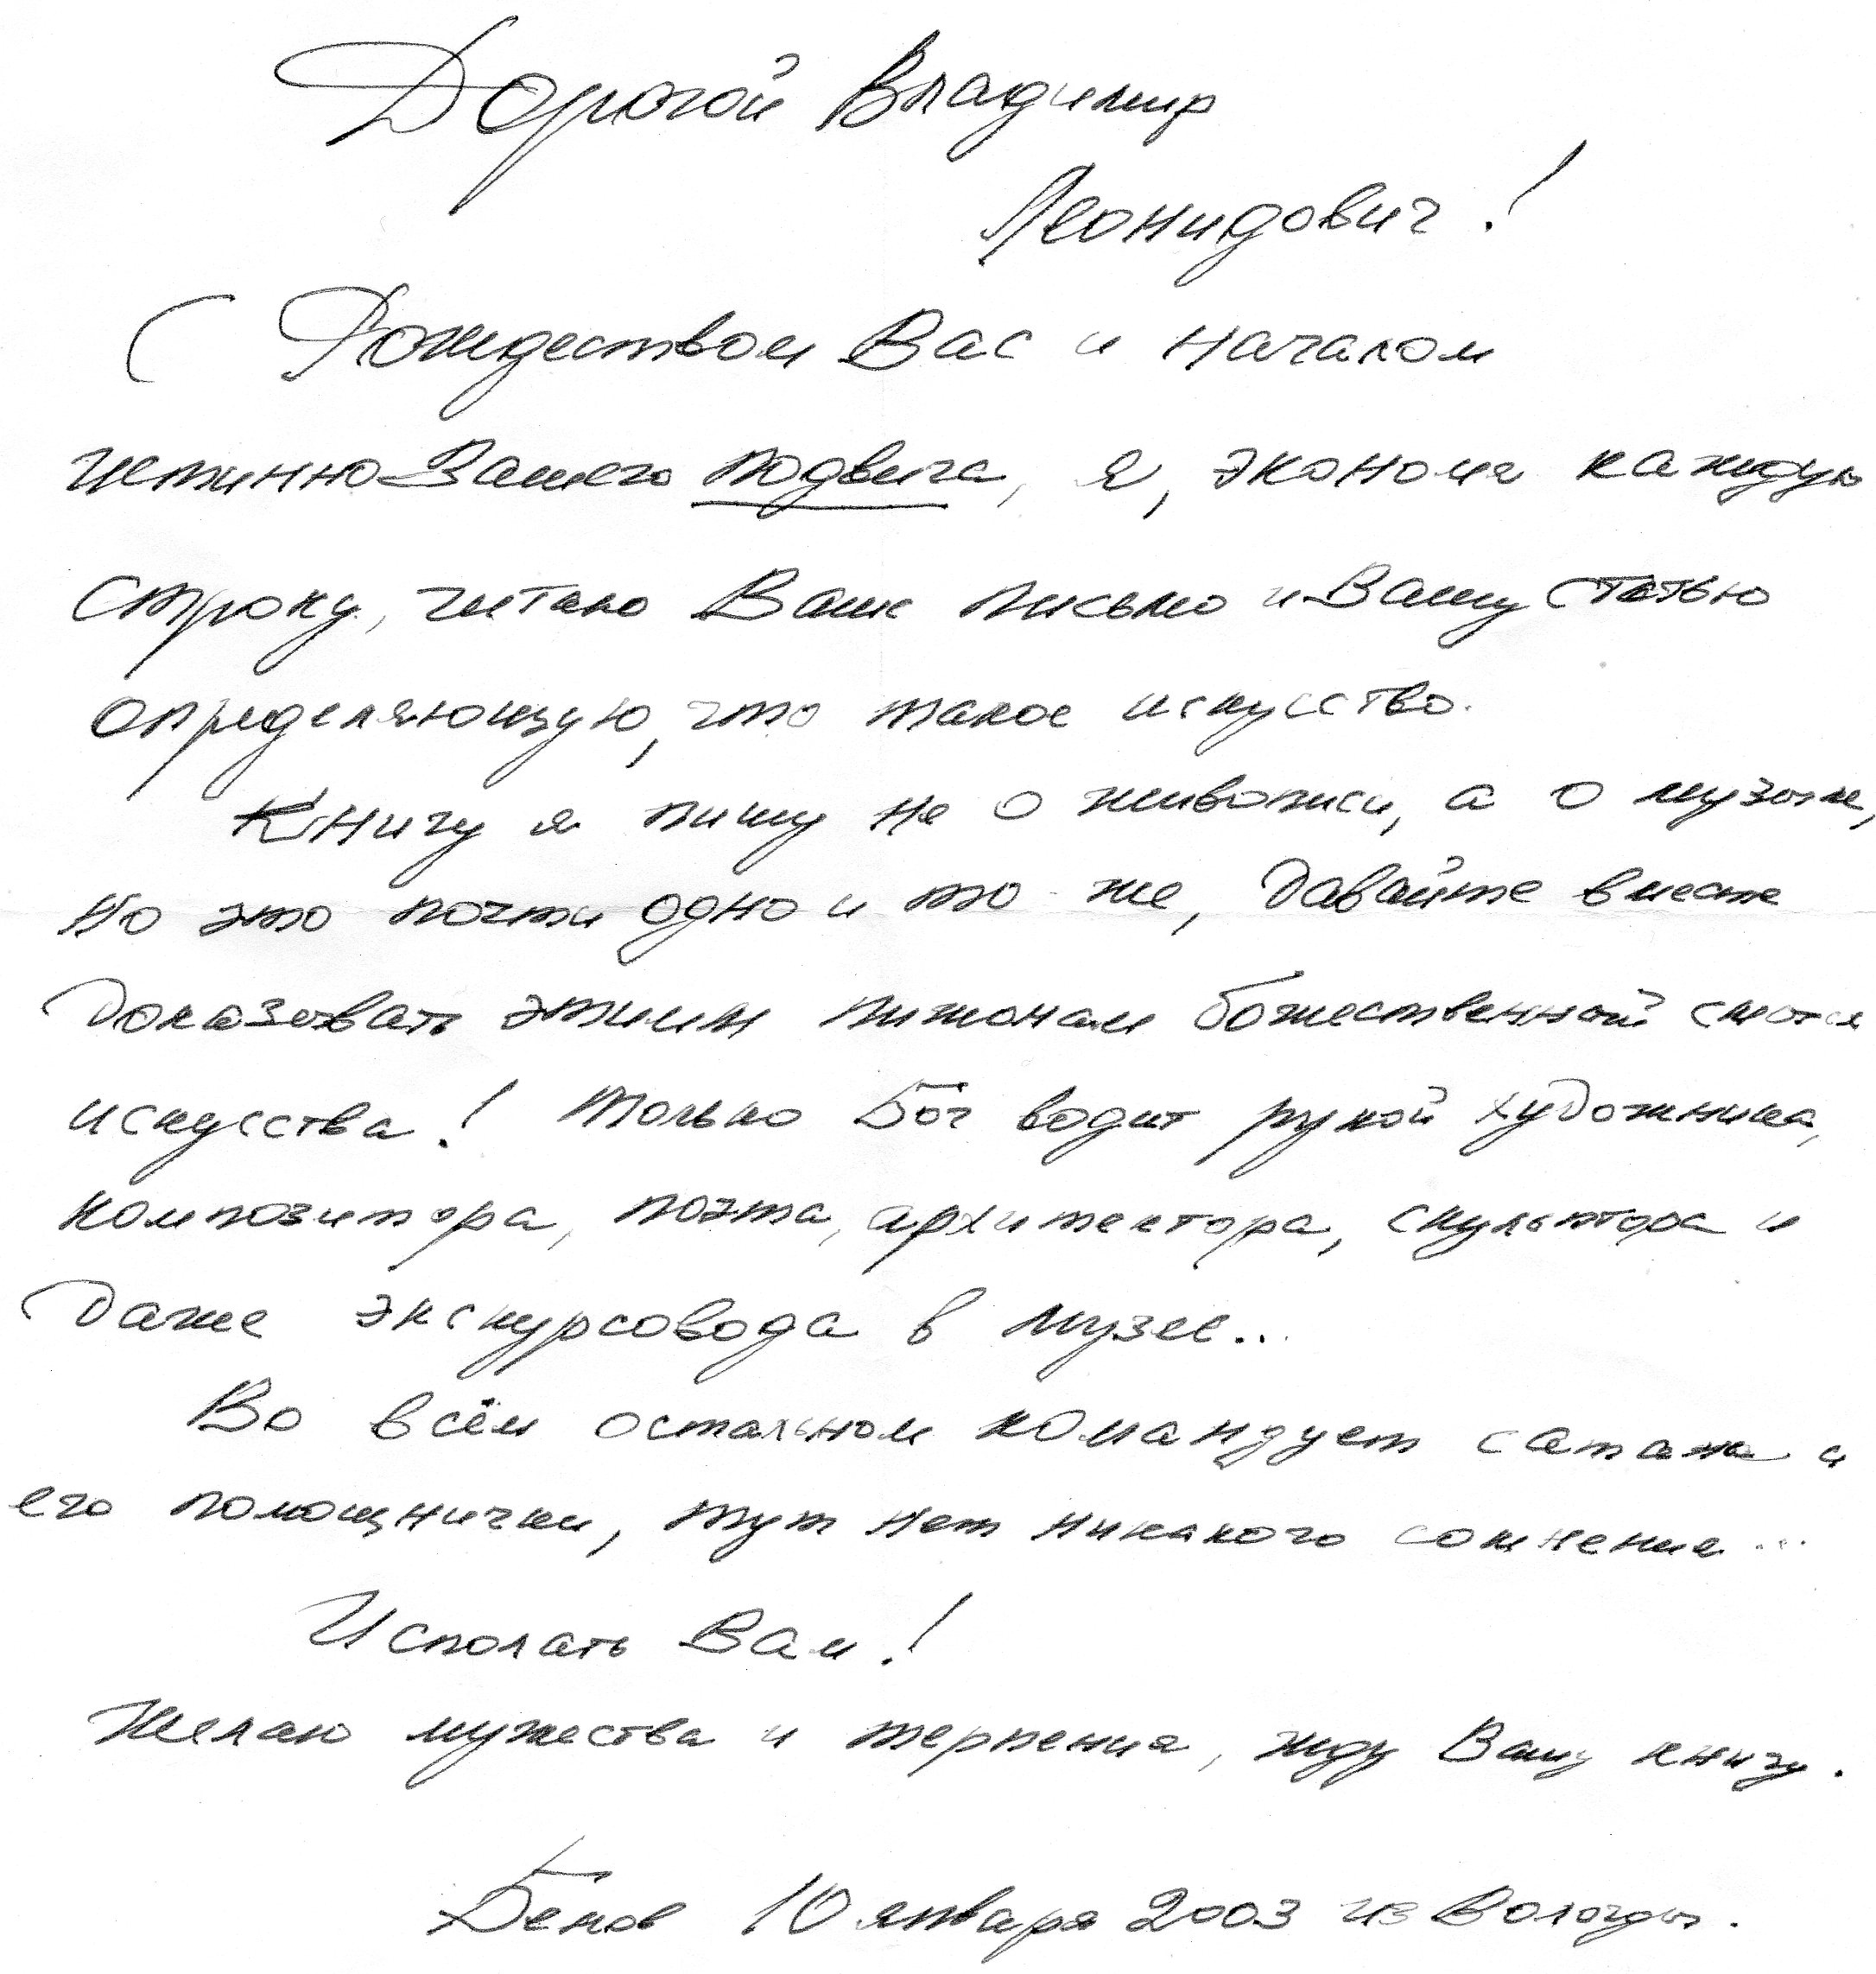 Дорогой Владимир
Леонидович!
С Рождеством Вас и началом
истинно Вашего подвига, я, экономя каждую
строку, читаю Ваше письмо и Вашу статью
определяющую, что такое искусство.
Книгу я пишу не о живописи, а о музыке,
но это почти одно и то же, давайте вместе
доказывать этим пижонам божественный смысл
искусства! Только Бог водит рукой художника,
композитора, поэта, архитектора, скульптора и
даже экскурсовода в музее...
Во всём остальном командует сатана и
его помощнички, тут нет никакого сомнения...
Исполать Вам!
Желаю мужества и терпения, жду Вашу книгу.
Белов 10 января 2003 из Вологды.